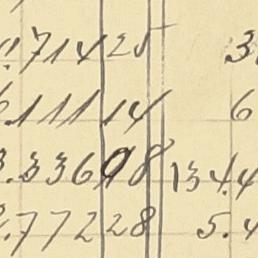 714 25 3
111 14 6
3.336 98 134.4
.772 28 5.4